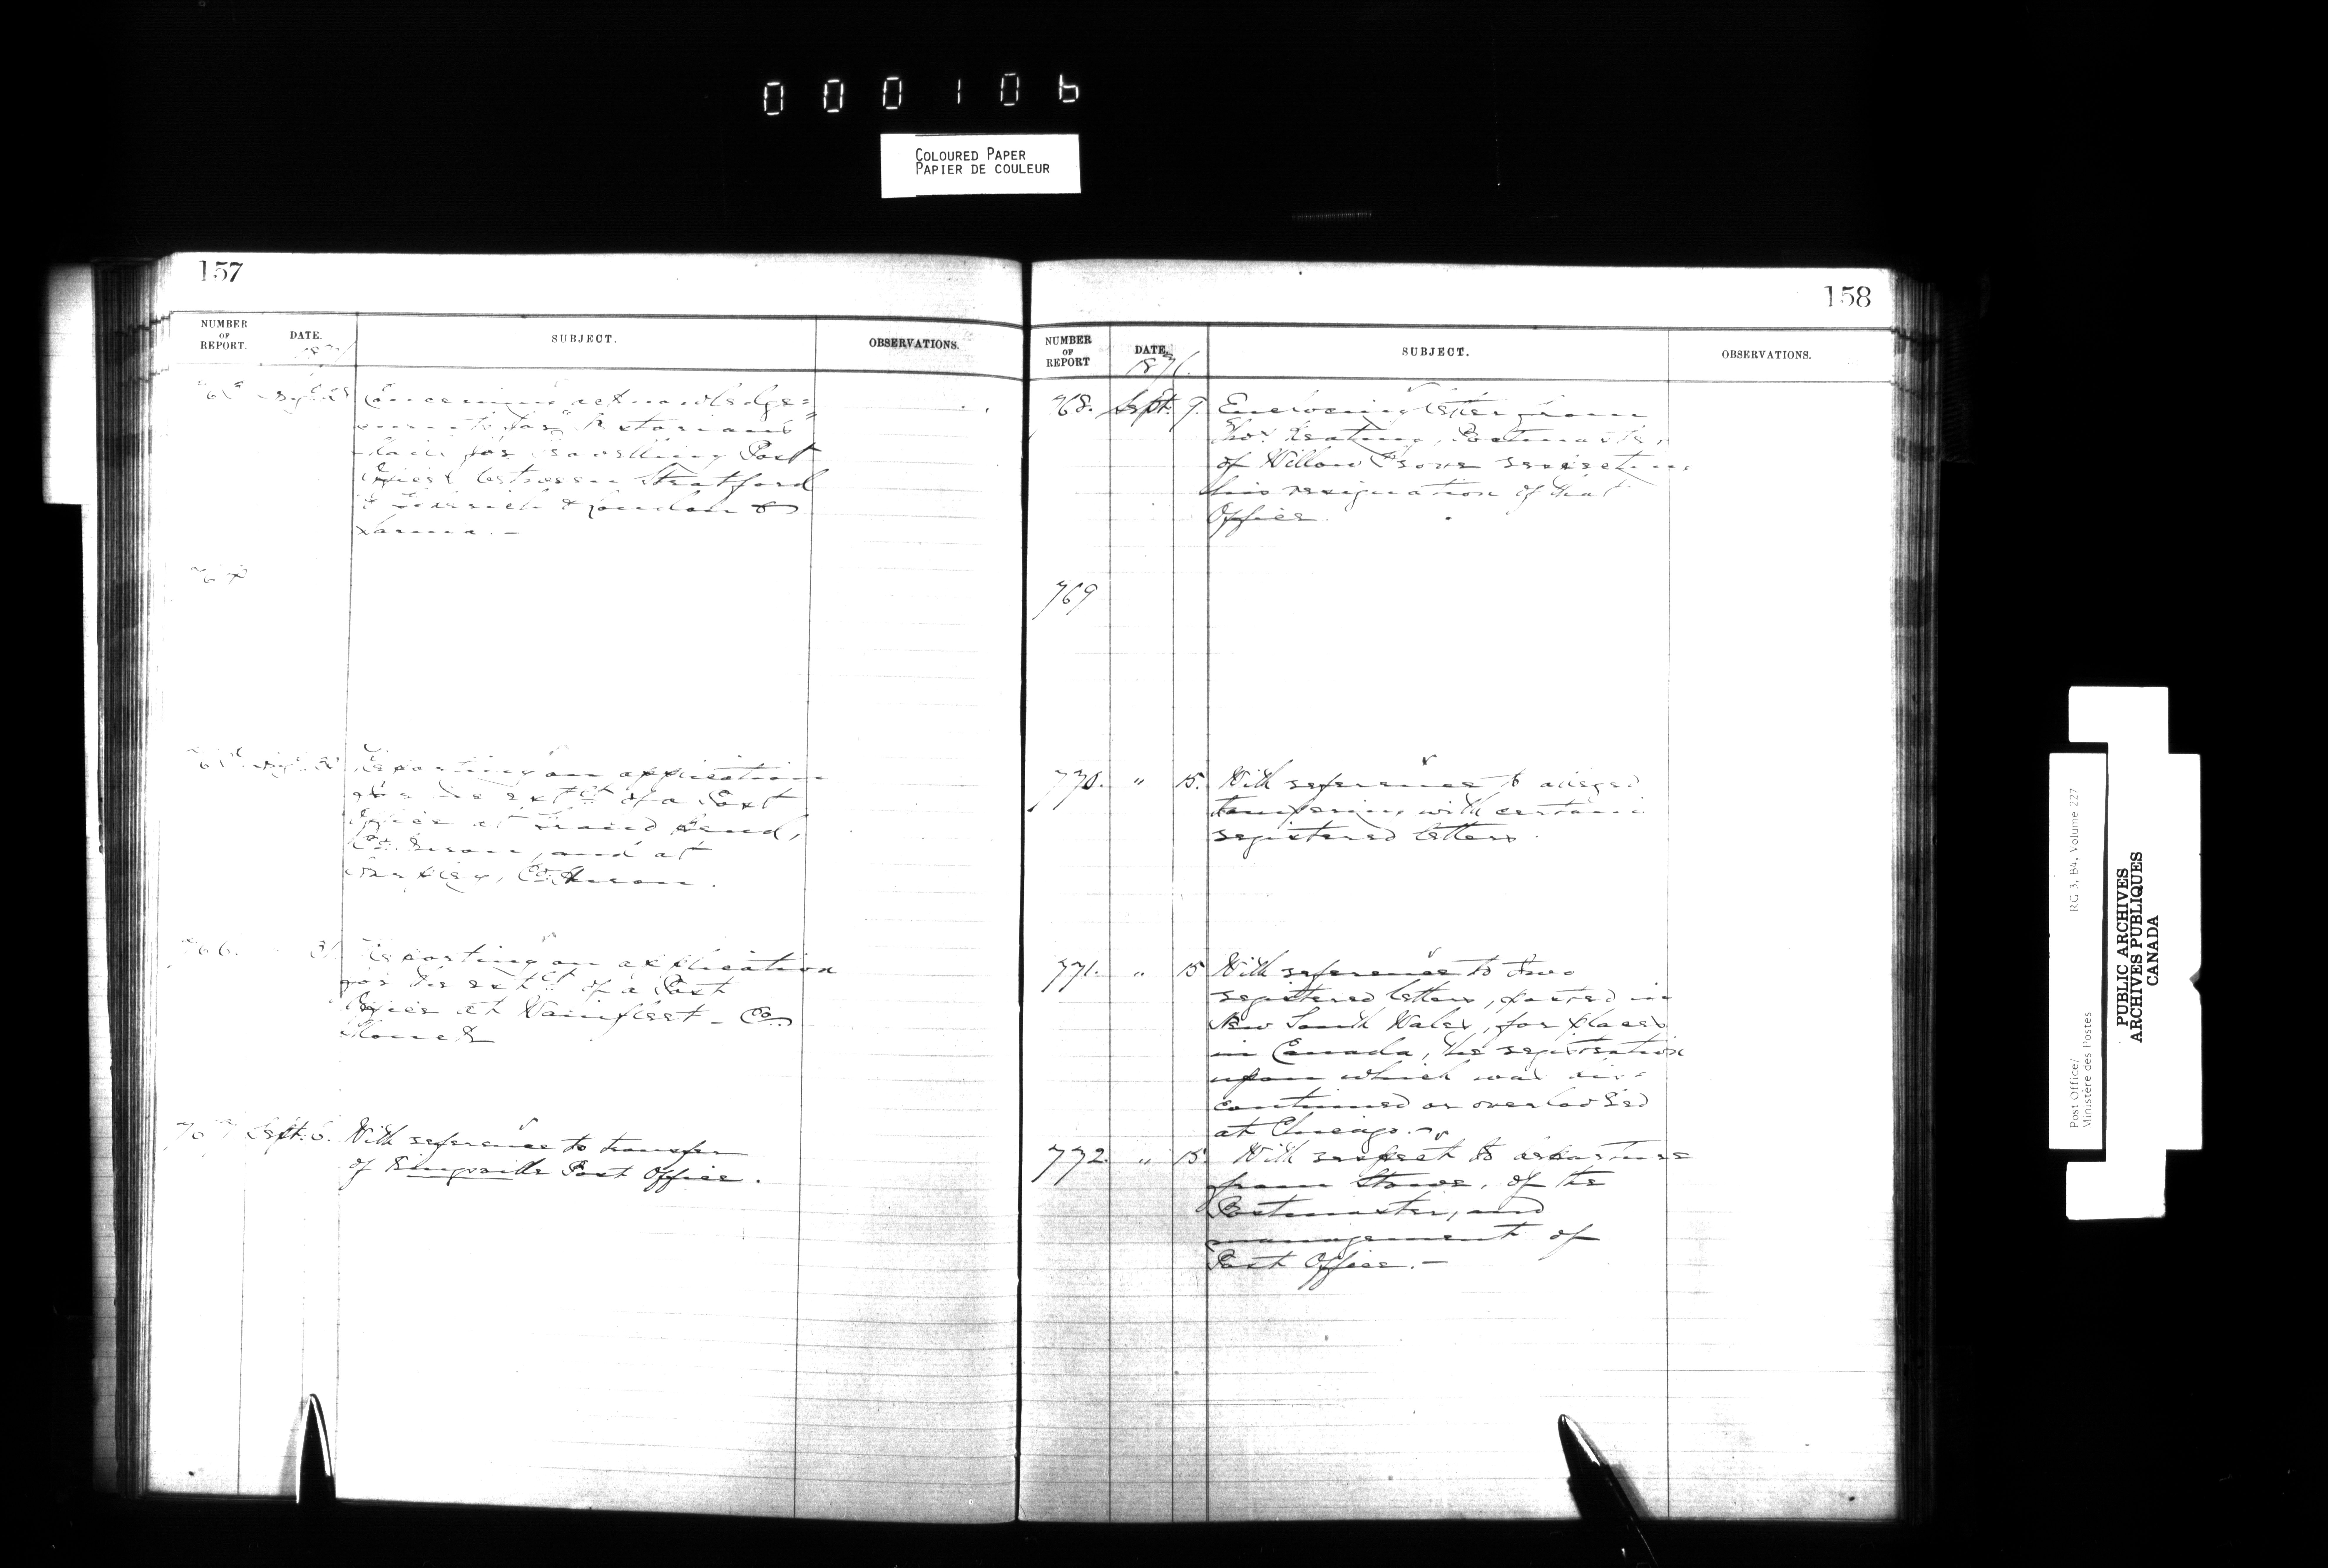 000106
COLOURED PAPER
PAPIER DE COULEUR
157
NUMBER OF REPORT.
DATE.
SUBJECT.
OBSERVATIONS.
Concerning acknowledge=
ments for
Mails for travelling Post
Offices between Stratford
& Goderich & London &
Sarnia. —
764
Reporting on application
for the est^t of a Post
Office at Grand Bend,
Co. Huron, and at
Co. Huron.
766. 31
Reporting on application
for the est^t of a Post
Office at Wainfleet - Co.
Monck
767 Sept. 6. With reference to transfer
of Kingsville Post Office.
158
NUMBER OF REPORT
DATE
1876.
SUBJECT.
OBSERVATIONS.
768. Sept. 9. Enclosing letter from
Thos. Keating, Postmaster
of Willow Grove respecting
his resignation of that
Office.
769
770. " 15. With reference to alleged
tampering with certain
registered letters.
771. " 15 With reference to two
registered letters, posted in
New South Wales, for places
in Canada, the registration
upon which was dis-
continued or overlooked
at Chicago. —
772 " 15 With respect to departure
from Stowe, of the
Postmaster, and
management of
Post Office. —
Post Office/
Ministère des Postes
RG 3, B4, Volume 227
PUBLIC ARCHIVES
ARCHIVES PUBLIQUES
CANADA